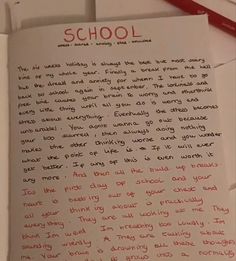 SCHOOL
stress - hatred - anxiety - sad - unwanted
The six weeks holiday is always the best but most scary
time of my whole year. Finally a break from the hell
but the dread and anxiety for when I have to go
back to school again in september. The loneliness and
free time causes your brain to worry and overthink
every little thing. we'll all you do is worry and
stress about everything. Eventually the stress becomes
unbearable. You don't wanna go out because
your too scared, then always doing nothing
makes the other thinking worse and you wonder
what the point of life is & If it will ever
get better. If any of this is even worth it
any more. And then all the build up breaks
Its the first day of school and your
heart is beating out of your chest and
all your thinking about is practically
everything. They are all looking at me They
think Im weird Im breathing too loudly. Im
standing weirdly They are talking about
me. Your brain is drowning all these thoughts